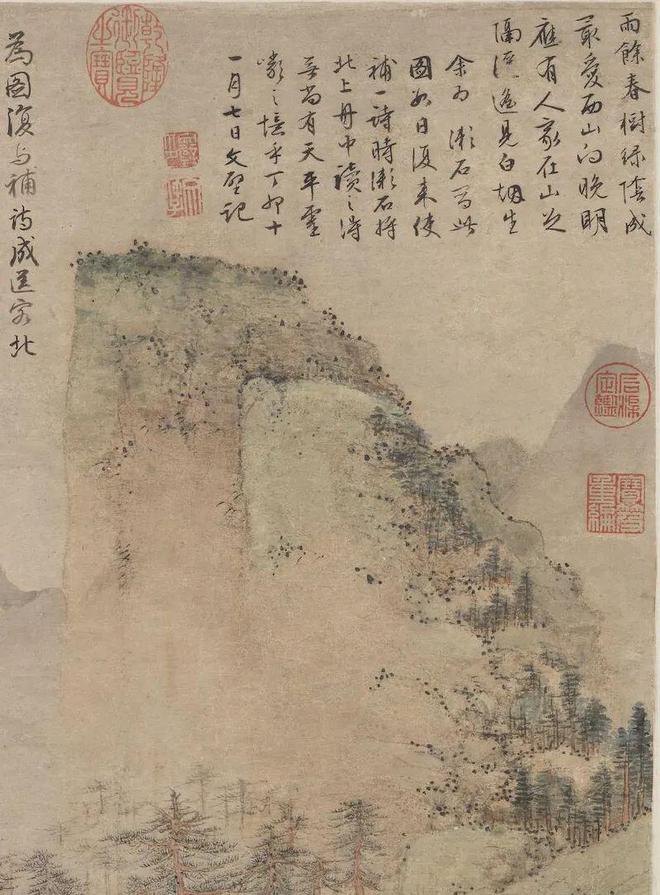 雨餘春樹綠陰成
最愛西山向晚明
應有人家在山足
隔溪遙見白烟生
余為瀨石寫此
圖數日復來使
補一詩時瀨石將
北上舟中讀之得
無尚有天平靈
巖之憶乎丁卯十
一月七日文璧記
為圖復与補詩成送客北
乾隆御覽之寶
石渠定鑑
寶笈重編